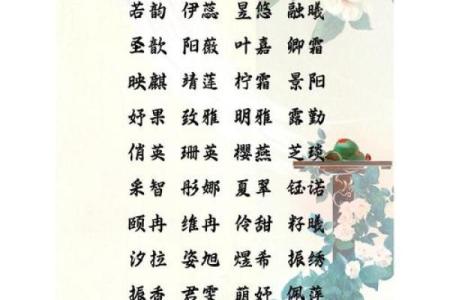 若韵 伊蕊 昱悠 融曦
圣歆 阳薇 叶嘉 卿霜
映麒 靖莲 柠霜 景阳
妤果 致雅 明雅 露勤
俏英 珊英 樱燕 芝琰
采智 彤娜 夏翠 钰诺
颐冉 维冉 伶甜 籽曦
汐拉 姿旭 煜希 振绣
振香 君雯 萌妤 佩萍